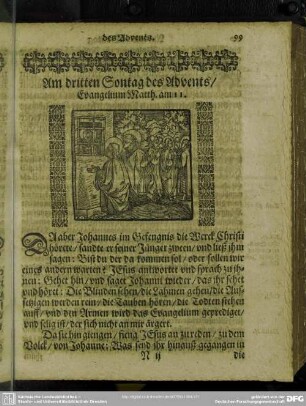 des Advents.
99
Am dritten Sontag des Advents/
Evangelium Matth. am 11.
DA aber Johannes im Gefengnis die Werck Christi
hörete/ sandte er seiner Jünger zween/ und ließ jhm
sagen: Bist du der da kommen sol/ oder sollen wir
eines andern warten? JEsus antwortet und sprach zu jh-
nen: Gehet hin/ und saget Johanni wieder/ das jhr sehet
und höret: Die Blinden sehen/ die Lahmen gehen/ die Auß-
setzigen werden rein/ die Tauben hören/ die Todten stehen
auff/ und den Armen wird das Evangelium geprediget/
und selig ist/ der sich nicht an mir ärgert.
Da sie hin giengen/ fieng JEsus an zu reden/ zu dem
Volck/ von Johanne: Was seyd jhr hinauß gegangen in
N ij
die